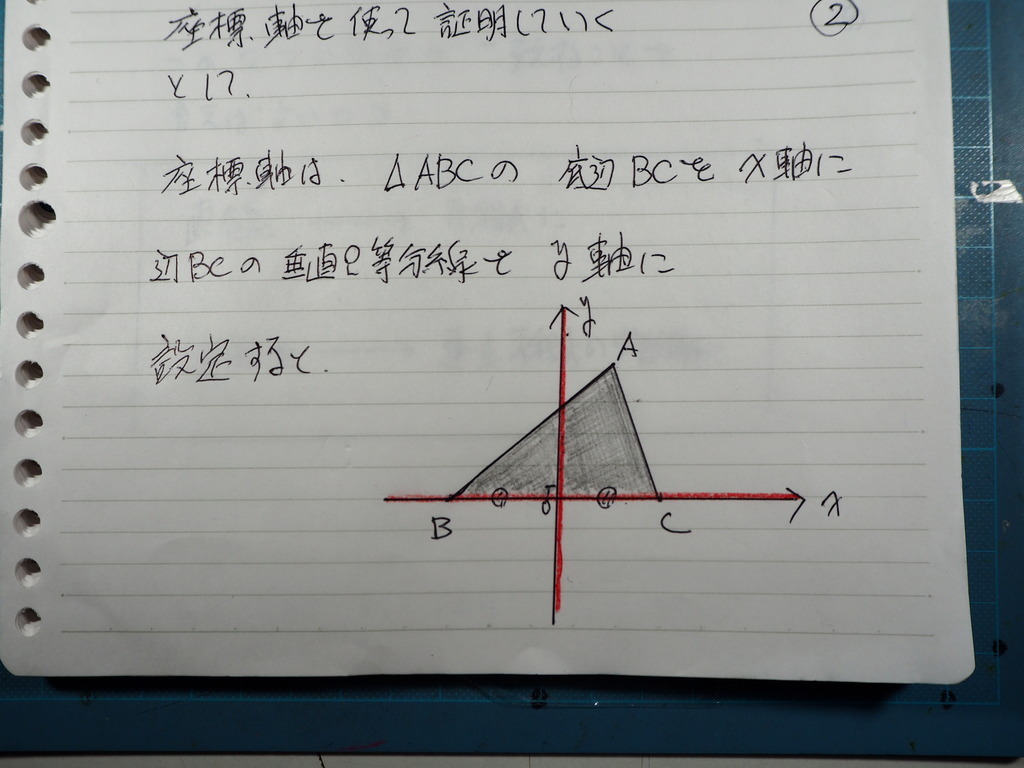 座標軸を使って証明していく
②
として、
座標軸は、△ABCの 底辺BCを x軸に
辺BCの垂直2等分線を y軸に
設定すると、
y
A
B
C
x